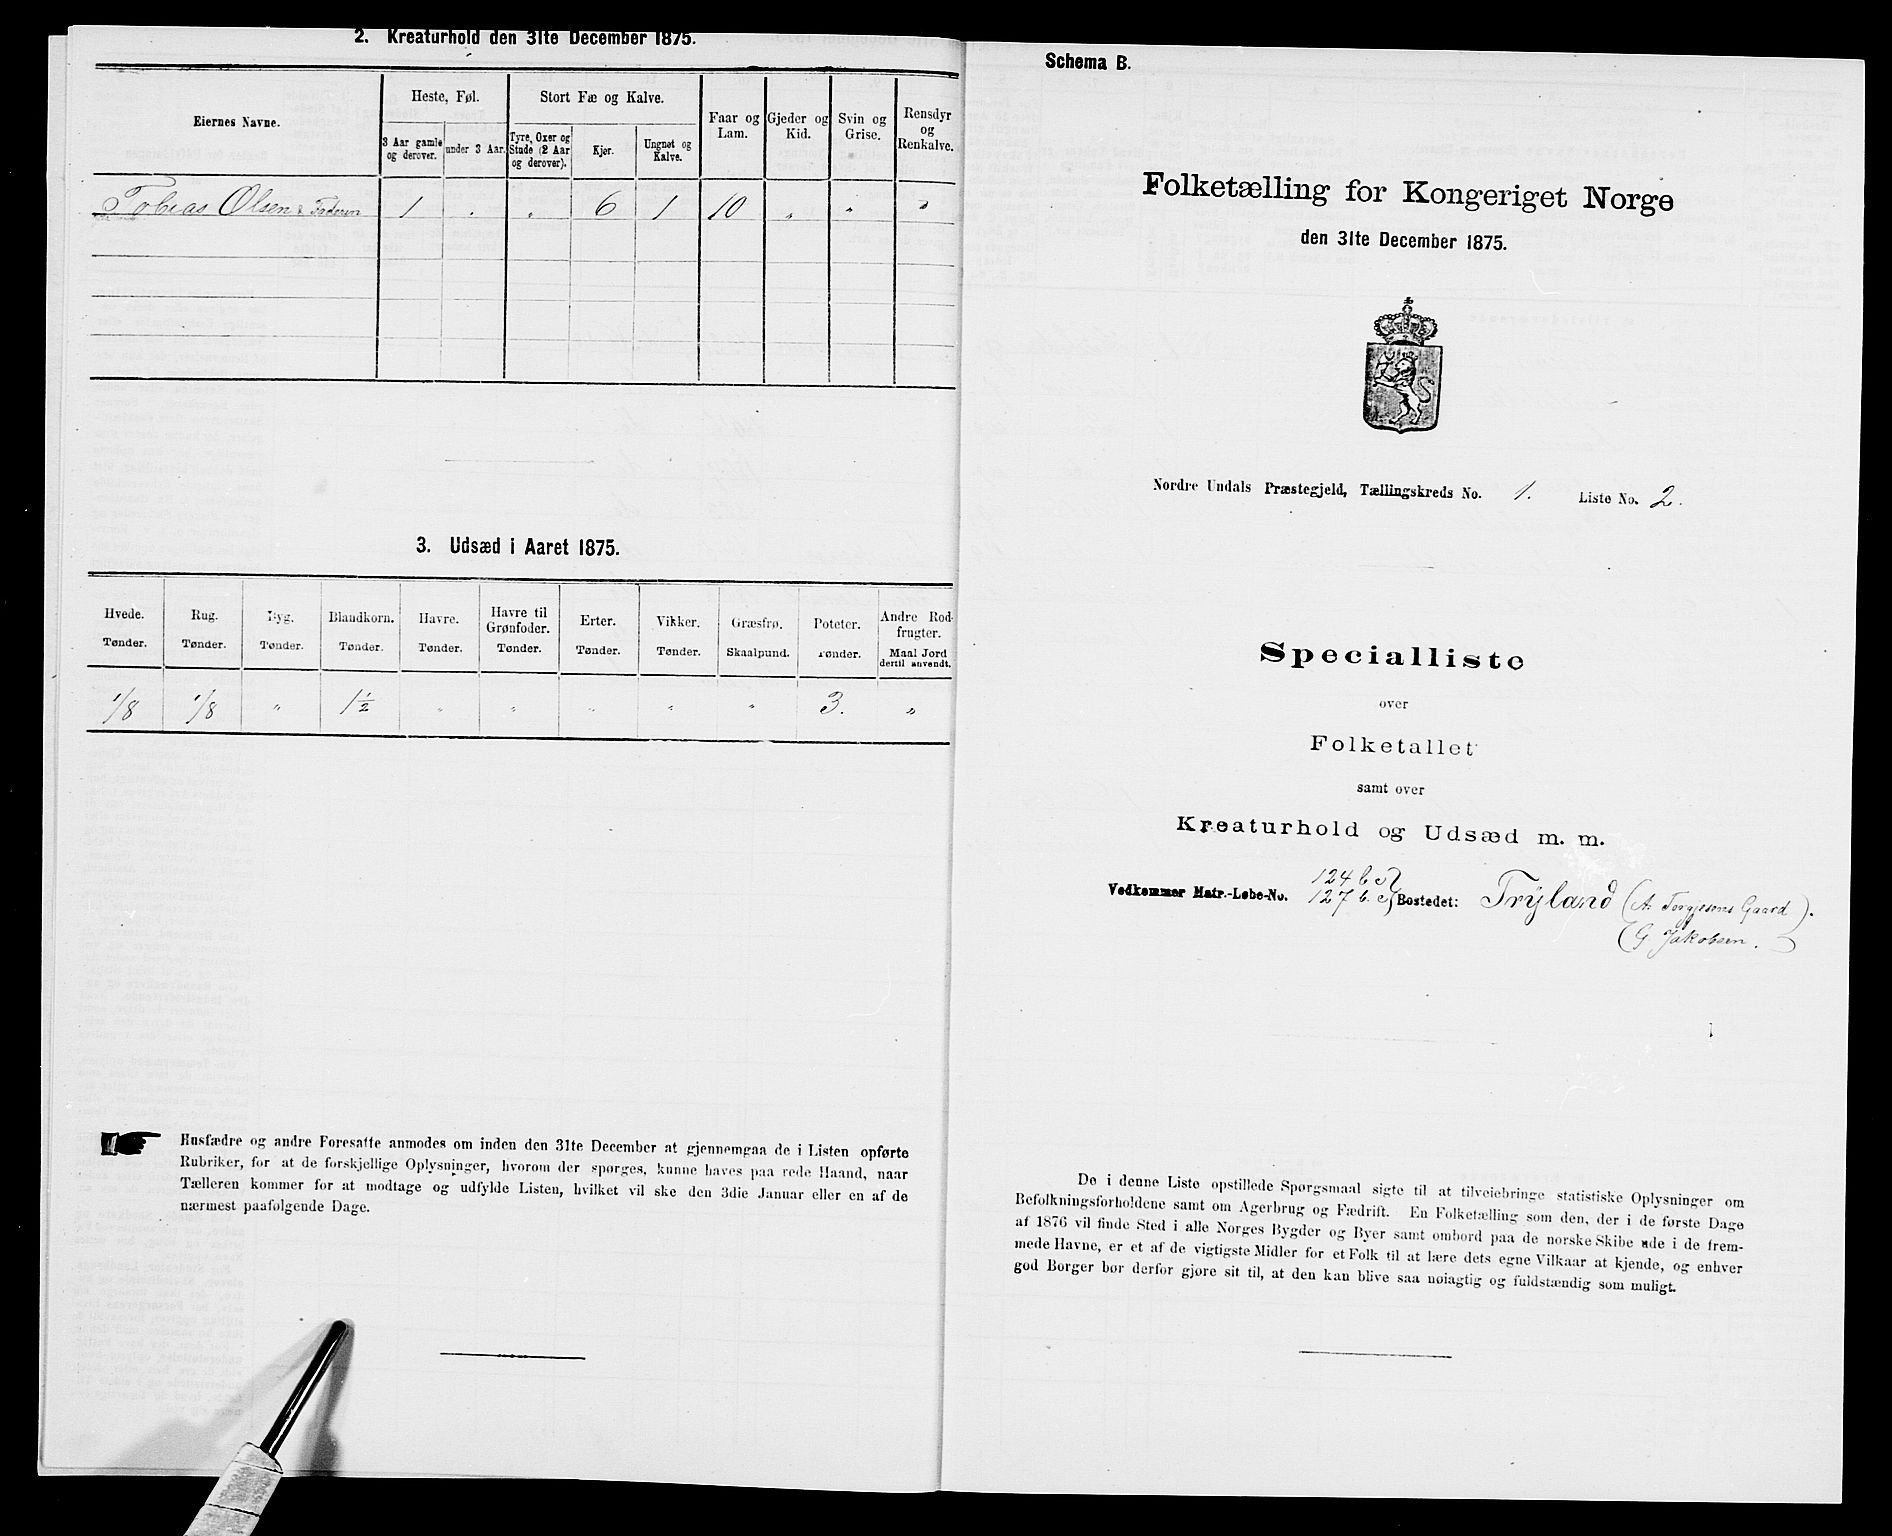 2. Kreaturhold den 31te December 1875.
Eiernes Navne.
Heste, Føl.
3 Aar gamle og derover.
under 3 Aar.
Stort Fæ og Kalve.
Tyre, Oxer og Stude (2 Aar og derover).
Kjør.
Ungnøt og Kalve.
Faar og Lam.
Gjeder og Kid.
Svin og Grise.
Rensdyr og Renkalve.
Tobias Olsen & Faderen 1 . „ 6 1 10 „ „ „
3. Udsæd i Aaret 1875.
Hvede. Rug. Byg. Blandkorn. Havre. Havre til Grønfoder. Erter. Vikker. Græsfrø. Poteter. Andre Rodfrugter.
Tønder. Tønder. Tønder. Tønder. Tønder. Tønder. Tønder. Tønder. Skaalpund. Tønder. Maal Jord dertil anvendt.
1/8 1/8 „ 1 1/2 „ „ „ „ „ 3. „
Husfædre og andre Foresatte anmodes om inden den 31te December at gjennemgaa de i Listen opførte
Rubriker, for at de forskjellige Oplysninger, hvorom der spørges, kunne haves paa rede Haand, naar
Tælleren kommer for at modtage og udfylde Listen, hvilket vil ske den 3die Januar eller en af de
nærmest paafølgende Dage.
Schema B.
Folketælling for Kongeriget Norge
den 31te December 1875.
Nordre Undals Præstegjeld, Tællingskreds No. 1. Liste No. 2.
Specialliste
over
Folketallet
samt over
Kreaturhold og Udsæd m. m.
124 b
Vedkommer Matr.-Løbe-No. 127 b. Bostedet: Trÿland (A. Torgjesens Gaard).
(G. Jakobsen. )
De i denne Liste opstillede Spørgsmaal sigte til at tilveiebringe statistiske Oplysninger om
Befolkningsforholdene samt om Agerbrug og Fædrift. En Folketælling som den, der i de første Dage
af 1876 vil finde Sted i alle Norges Bygder og Byer samt ombord paa de norske Skibe ude i de frem-
mede Havne, er et af de vigtigste Midler for et Folk til at lære dets egne Vilkaar at kjende, og enhver
god Borger bør derfor gjøre sit til, at den kan blive saa nøiagtig og fuldstændig som muligt.